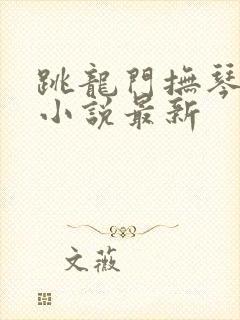 跳龍門撫琴
小說最新
文薇